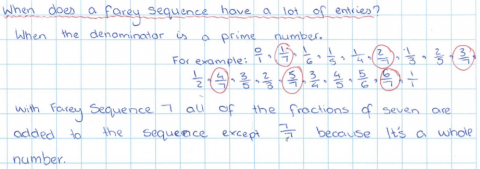 When does a farey sequence have a lot of entries?
When the denominator is a prime number.
For example: 0/1, 1/7, 1/6, 1/5, 1/4, 2/7, 1/3, 2/5, 3/7,
1/2, 4/7, 3/5, 2/3, 5/7, 3/4, 4/5, 5/6, 6/7, 1/1
With Farey Sequence 7 all of the fractions of seven are
added to the sequence except 7/7 because It's a whole
number.